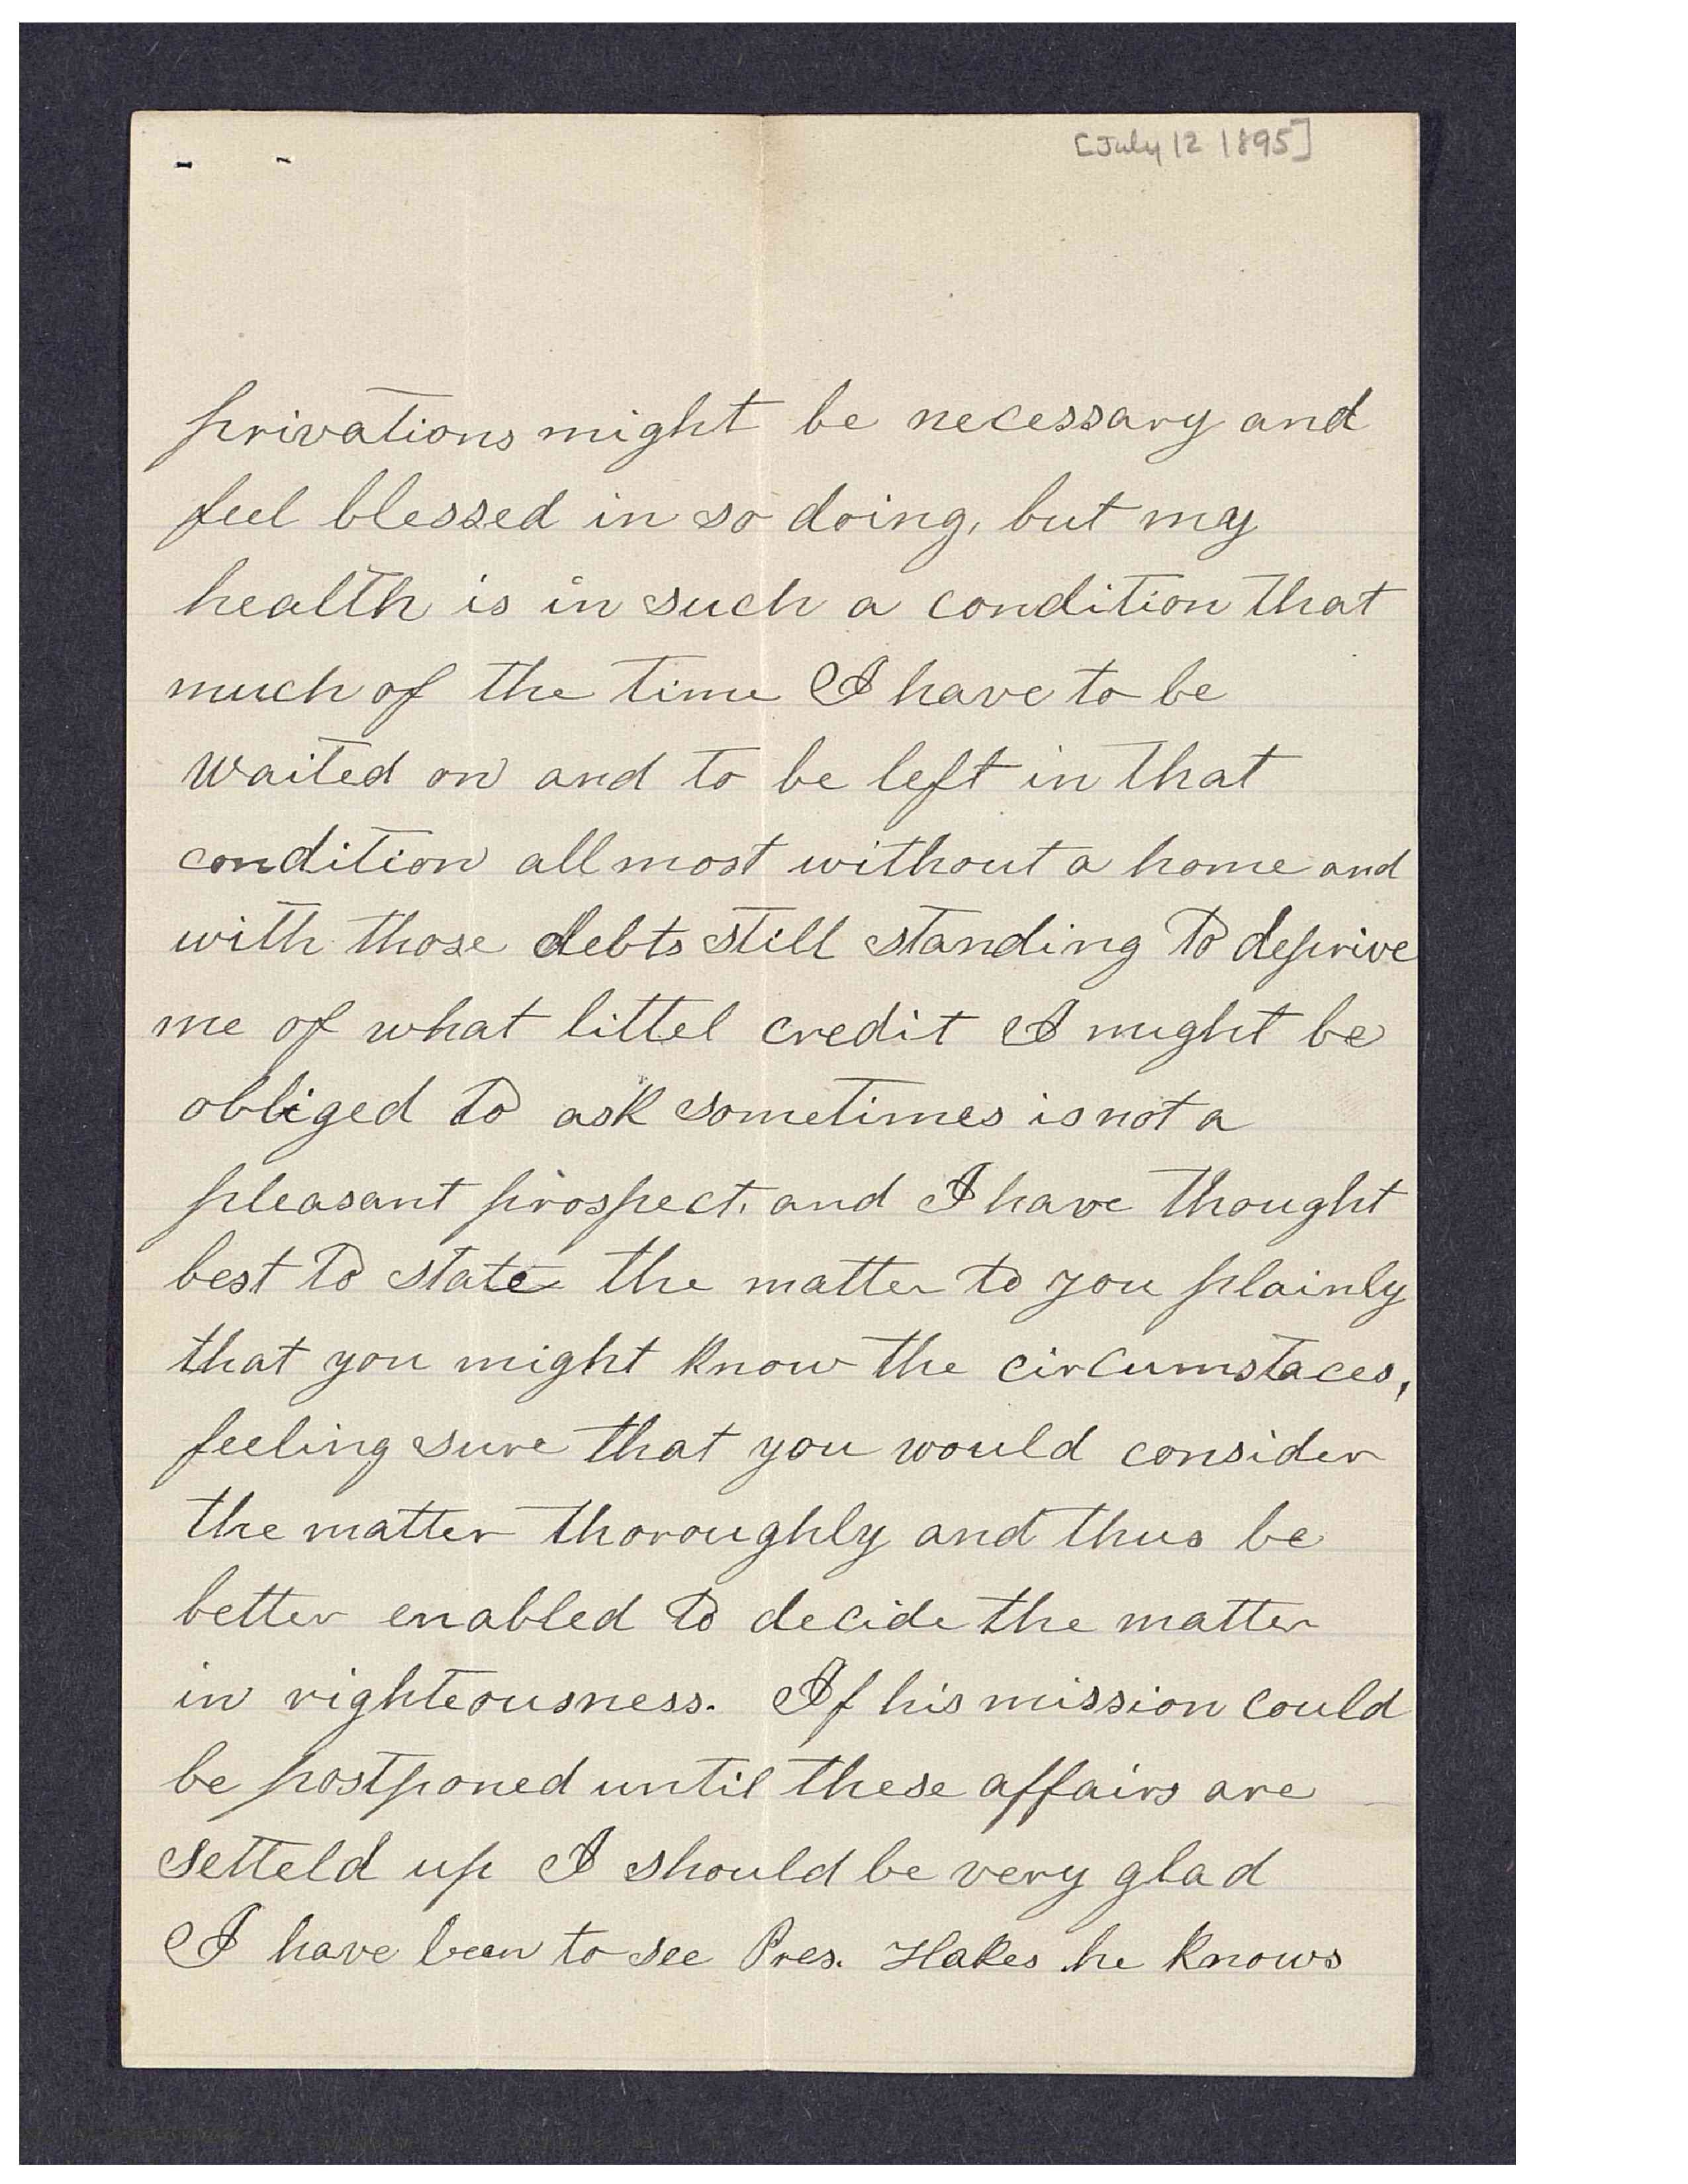 [July 12 1895]
privations might be necessary and
feel blessed in so doing, but my
health is in such a condition that
much of the time I have to be
waited on and to be left in that
condition allmost without a home and
with those debts still standing to deprive
me of what littel credit I might be
obliged to ask sometimes is not a
pleasant prospect, and I have thought
best to state the matter to you plainly
that you might know the circumstaces,
feeling sure that you would consider
the matter thoroughly and thus be
better enabled to decide the matter
in righteousness. If his mission could
be postponed until these affairs are
setteld up I should be very glad
I have been to see Pres. Hakes he knows